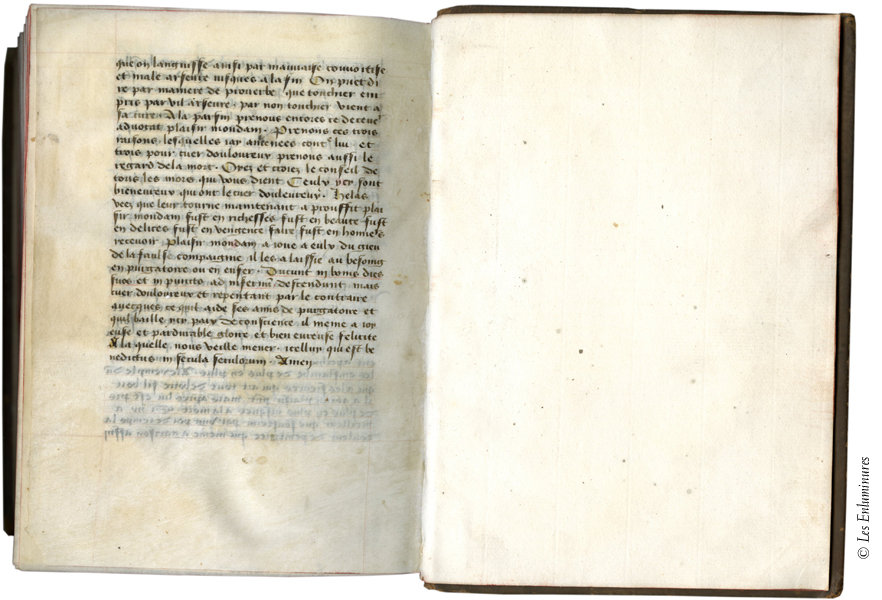 que on languisse ainsi par mauvaise couvoitise
et male arseure iusques a la fin On puet di
re par maniere de proverbe que touchier em
pris par vil arseure par non touchier vient a
sa cure A la parfin prenons encores ce deceveᵉ
advocat plaisir mondain Prenons ces trois
raisons les quelles iay avancees contᵉ lui et
trois pour cuer douloureux prenons aussi le
regard de la mort Oyez et croiez le conseil de
tous les mors qui vous dient Ceulx ycy sont
bieneureux qui ont le cuer douleureux Helas
veez que leur tourne maintenant a prouffit plai
sir mondain fust en richesses fust en beaute fust
en delices fust en vengence faire fust en honneᵉs
recevoir Plaisir mondain a ioue a eulx du gieu
de la faulse compaignie il les a laissie au besoing
en purgatoire ou en enfer Ducunt in bonis dies
suos et in puncto ad infernū descendunt mais
cuer douloureux et repentant par le contraire
quecques ce quil aide ses amis de purgatoire et
quil baille ycy paix de conscience il mene a ioy
euse et pardurable gloire et bien eureuse felicite
A la quelle nous veille mener icelluy qui est be
nedictus in secula seculorum Amen
© Les Enluminures